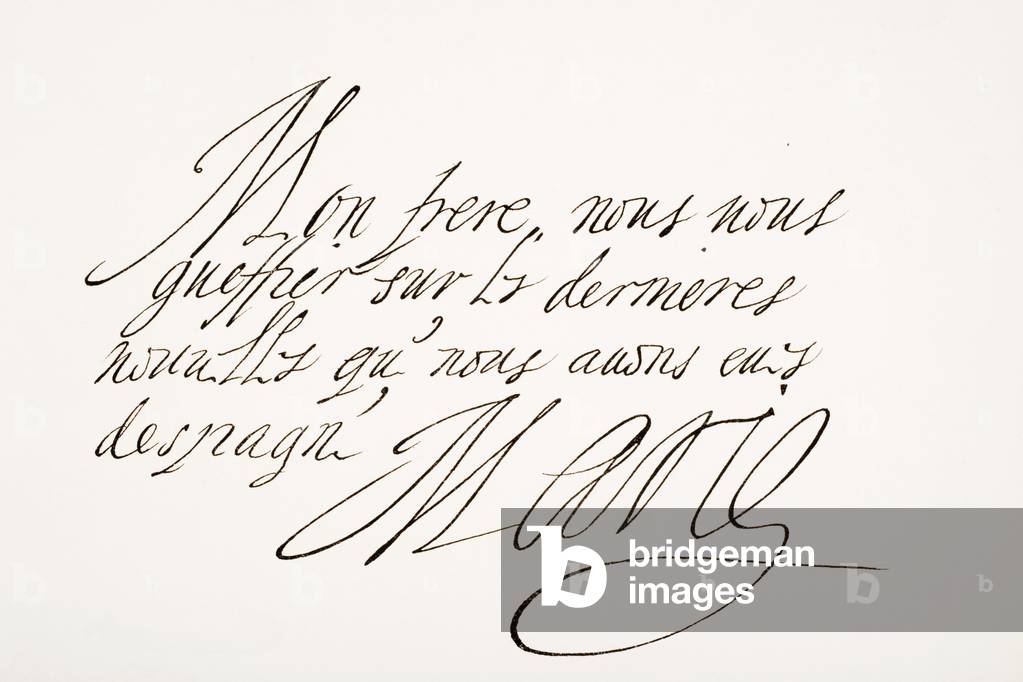 Mon frere, nous nous
gueffier sur les dernieres
nouuelles que nous auons eues
despagne
Marie
bridgeman
images